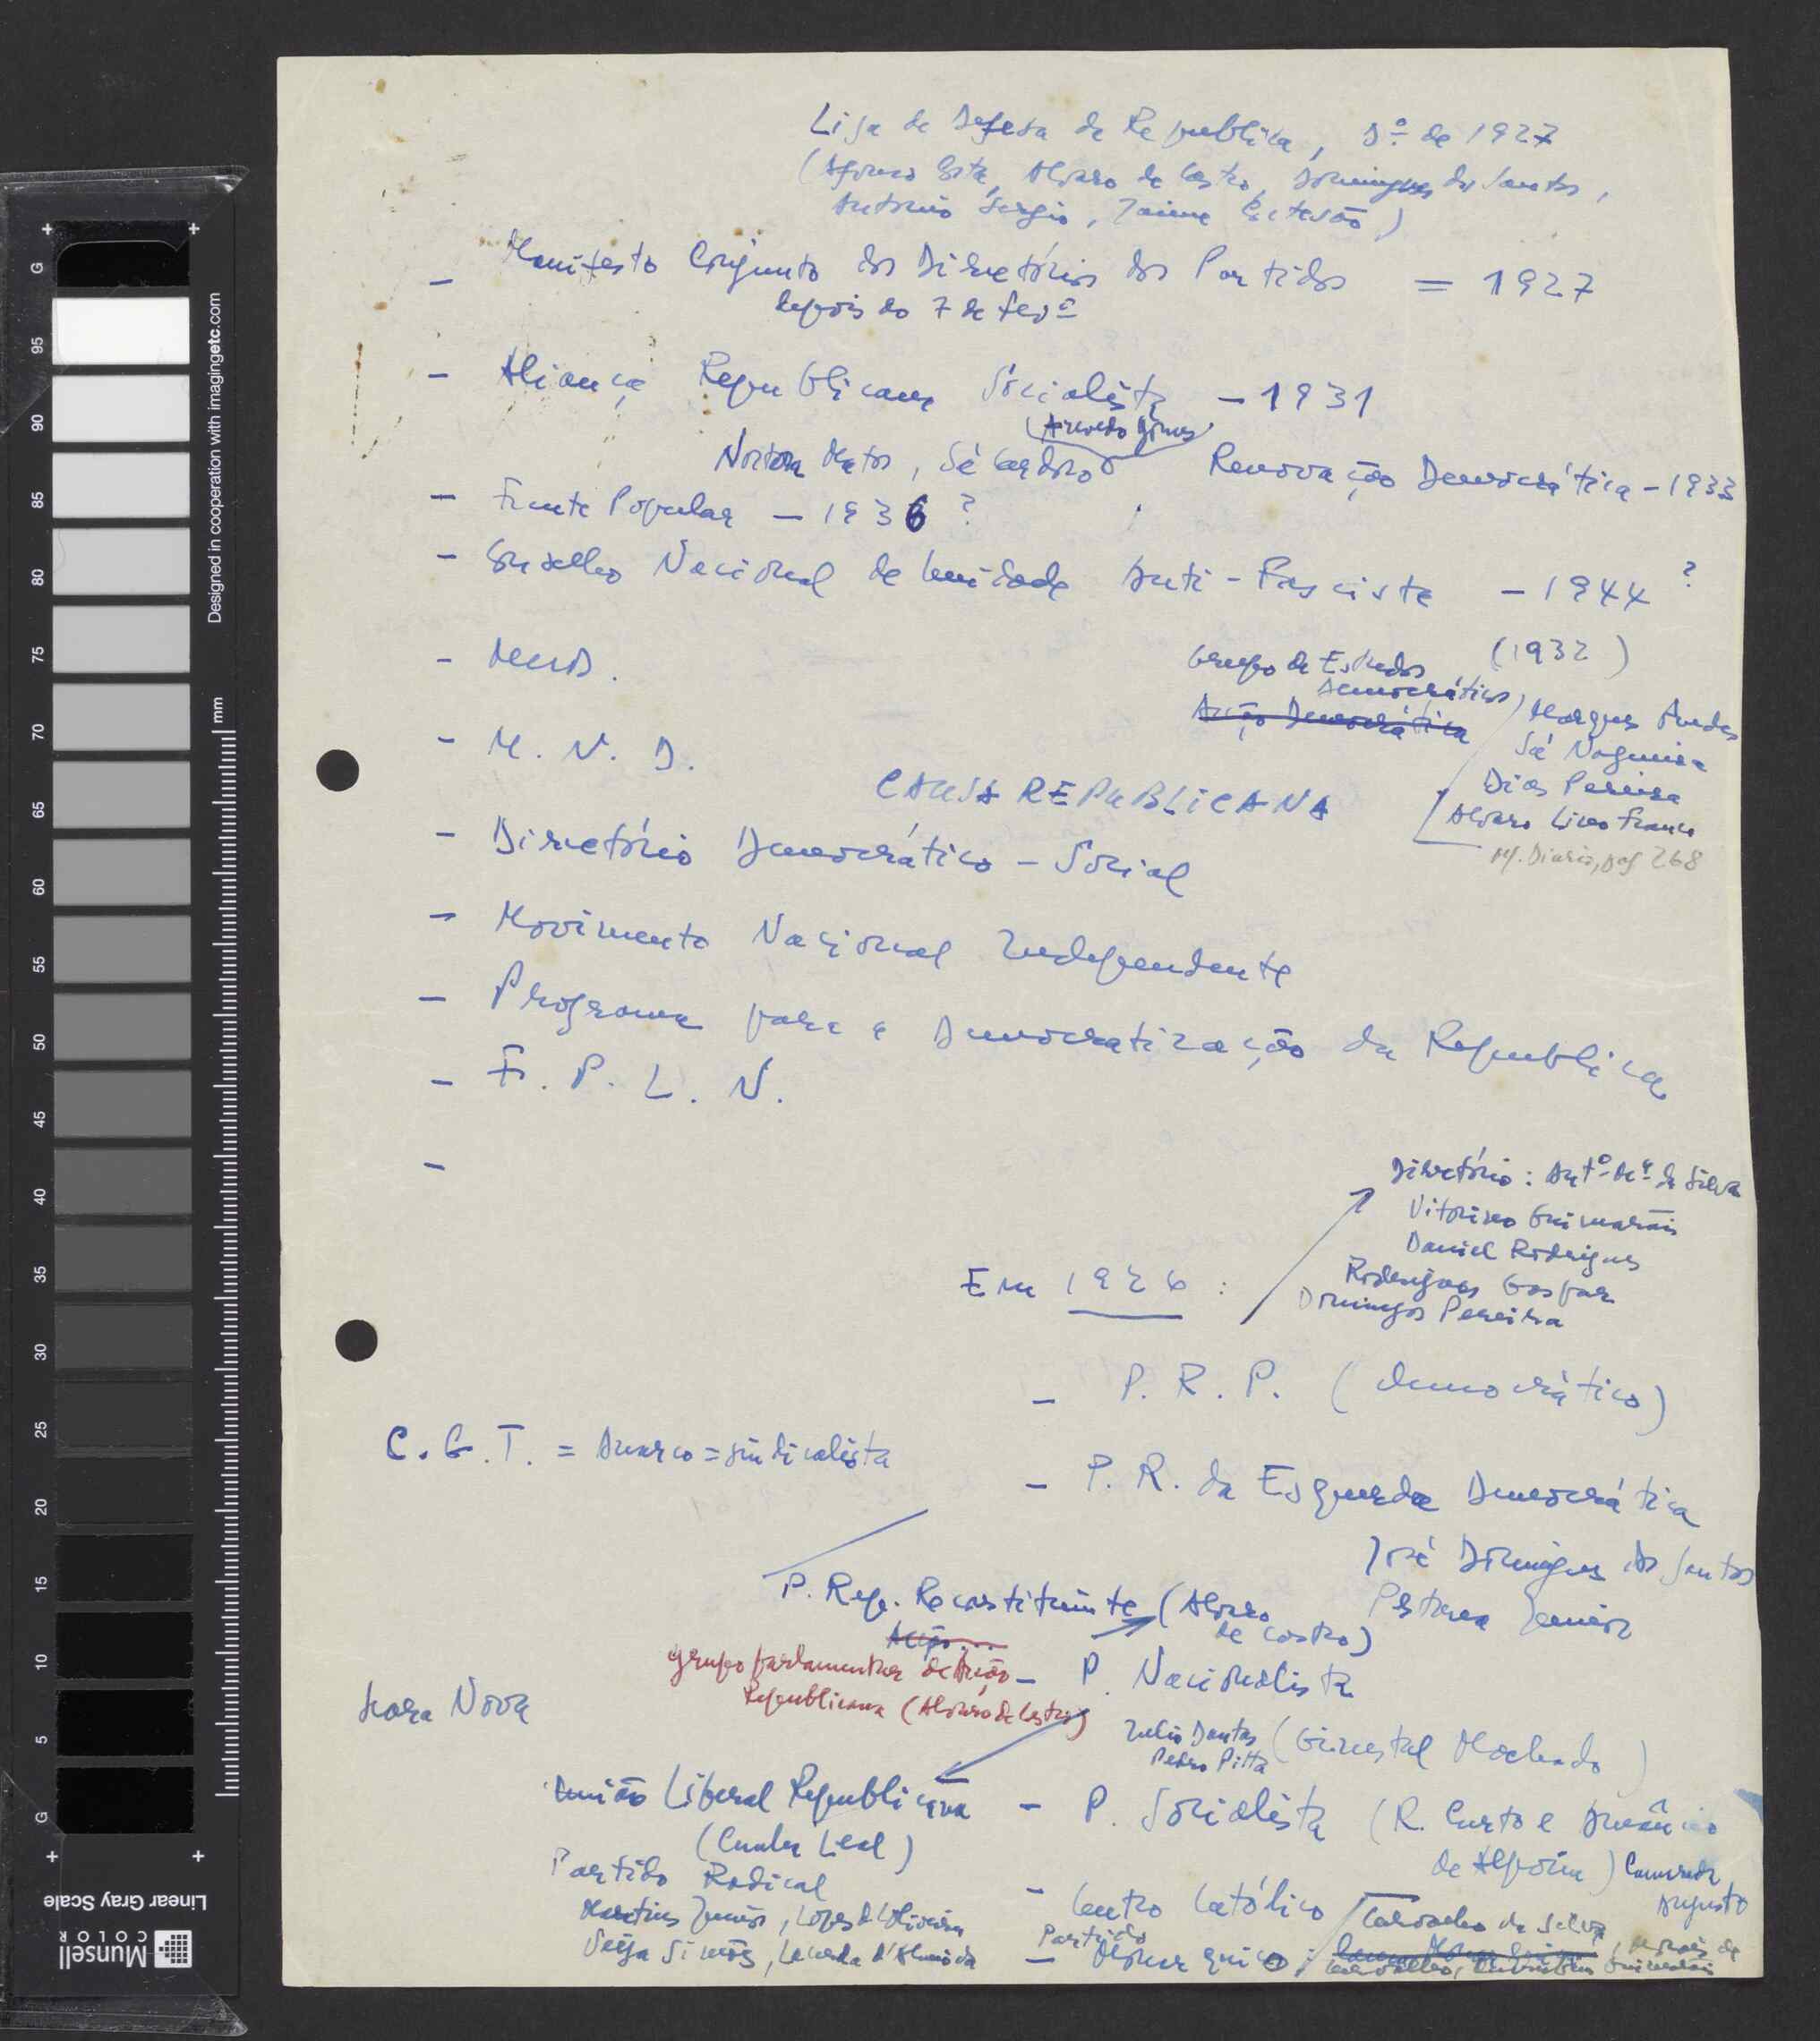 Liga de Defesa da Republica, D.º de 1927
(Afonso Costa, Alvaro de Castro, Domingues dos Santos,
Antonio Sergio, Jaime Cortesão)
- Manifesto Conjunto dos Diretórios dos Partidos = 1927
depois do 7 de Fevº
- Aliança Republicana Socialista - 1931
(Azevedo Gomes)
Norton Matos, Sá Cardoso
Renovação Democrática - 1933
- Frente Popular - 1936 ?
- Conselho Nacional de Unidade Anti-Fascista - 1944 ?
- MUD.
Grupo de Estudos (1932)
Democráticos
Acção Democrática
Marques Guedes
Sá Nogueira
Dias Pereira
Alvaro Lino Franco
Diario, pag 268
- M. N. D.
CAUSA REPUBLICANA
- Directório Democrático-Social
- Movimento Nacional Independente
- Programa para a Democratização da Republica
- F. P. L. N.
-
Diretório: Antº Mª da Silva
Vitorino Guimarães
Daniel Rodrigues
Rodrigues Gaspar
Domingos Pereira
Em 1926 :
- P. R. P. (democrático)
C. G. T. = Anarco=sindicalista
- P. R. da Esquerda Democrática
José Domingues dos Santos
Pestana Junior
P. Rep. Reconstituinte (Alvaro
de Castro)
Acção...
grupo parlamentar de Acção
Republicana (Alvaro de Castro)
- P. Nacionalista
Seara Nova
Julio Dantas (Ginestal Machado)
Pedro Pitta
União Liberal Republicana
(Cunha Leal)
- P. Socialista (R. Curto e Amâncio
de Alpoim) Camarada
Augusto
Partido Radical
Martins Junior, Lopes d'Oliveira
Veiga Simões, Lacerda d'Almeida
- Centro Católico
Carvalho da Silva,
Partido
- Monarquico :
Designed in cooperation with imagingetc.com
mm
G 95 90 85 80 75 70 65 60 55 50 45 40 35 30 25 20 15 10 5 G
Linear Gray Scale
Munsell
COLOR